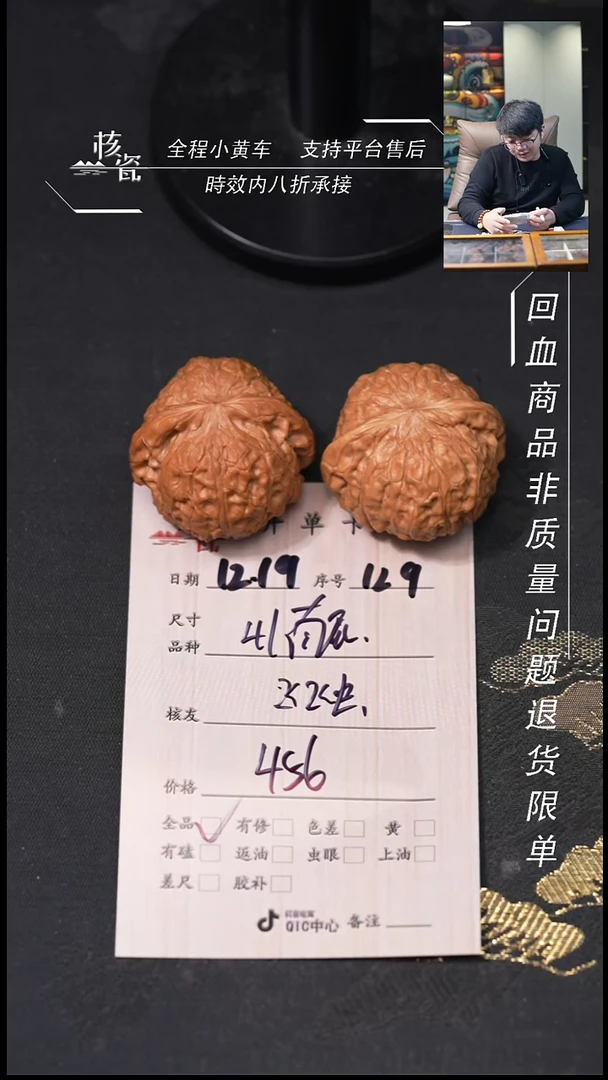 核瓷
全程小黄车 支持平台售后
時效内八折承接
回血商品非质量问题退货限单
单卡
日期 12.19 序号 129
尺寸
品种 41南
核友
价格 456
全品 有修 色差 黄
有磕 返油 虫眼 上油
差尺 胶补
QIC中心 备注